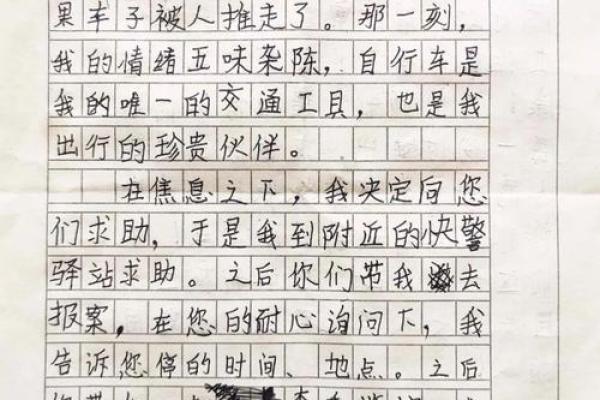 果车子被人推走了。那一刻,
我的情绪五味杂陈,自行车是
我的唯一的交通工具,也是我
出行的珍贵伙伴。
在焦息之下,我决定向您
们求助,于是我到附近的快警
驿站求助。之后你们带我去
报案,在您的耐心询问下,我
告诉您停的时间、地点。之后